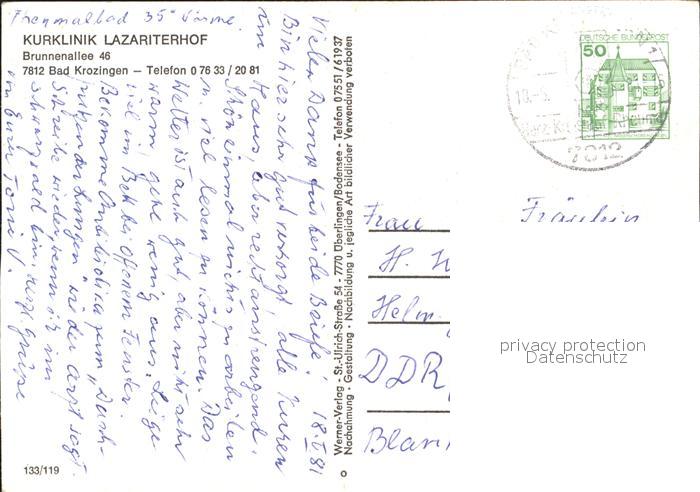 Thermalbad 35° Wärme.
KURKLINIK LAZARITERHOF
Brunnenallee 46
7812 Bad Krozingen – Telefon 0 76 33 / 20 81
18. V. 81
Vielen Dank für beide Briefe!
Bin hier sehr gut versorgt, alle Kuren
im Haus, aber sehr anstrengend.
Schön einmal nichts zu arbeiten
u. viel lesen zu können. Das
Wetter ist auch gut, aber nicht sehr
warm, gehe wenig aus. Liege
viel im Bett bei offenem Fenster.
Bekomme Antibiotica zum "Durch-
der Lungen" wie der Arzt sagt.
Schreibe wieder, wenn ich im
Schwarzwald bin. Herzl. Grüße
von Eurer Toni V.
133/119
Werner-Verlag - St.-Ulrich-Straße 54 - 7770 Überlingen/Bodensee - Telefon 07551/61937
Nachahmung - Gestaltung - Nachbildung u. jegliche Art bildlicher Verwendung verboten
DEUTSCHE BUNDESPOST
50
7812
Frau
Fräulein
H. W
Helm
DDR
Blan
privacy protection
Datenschutz